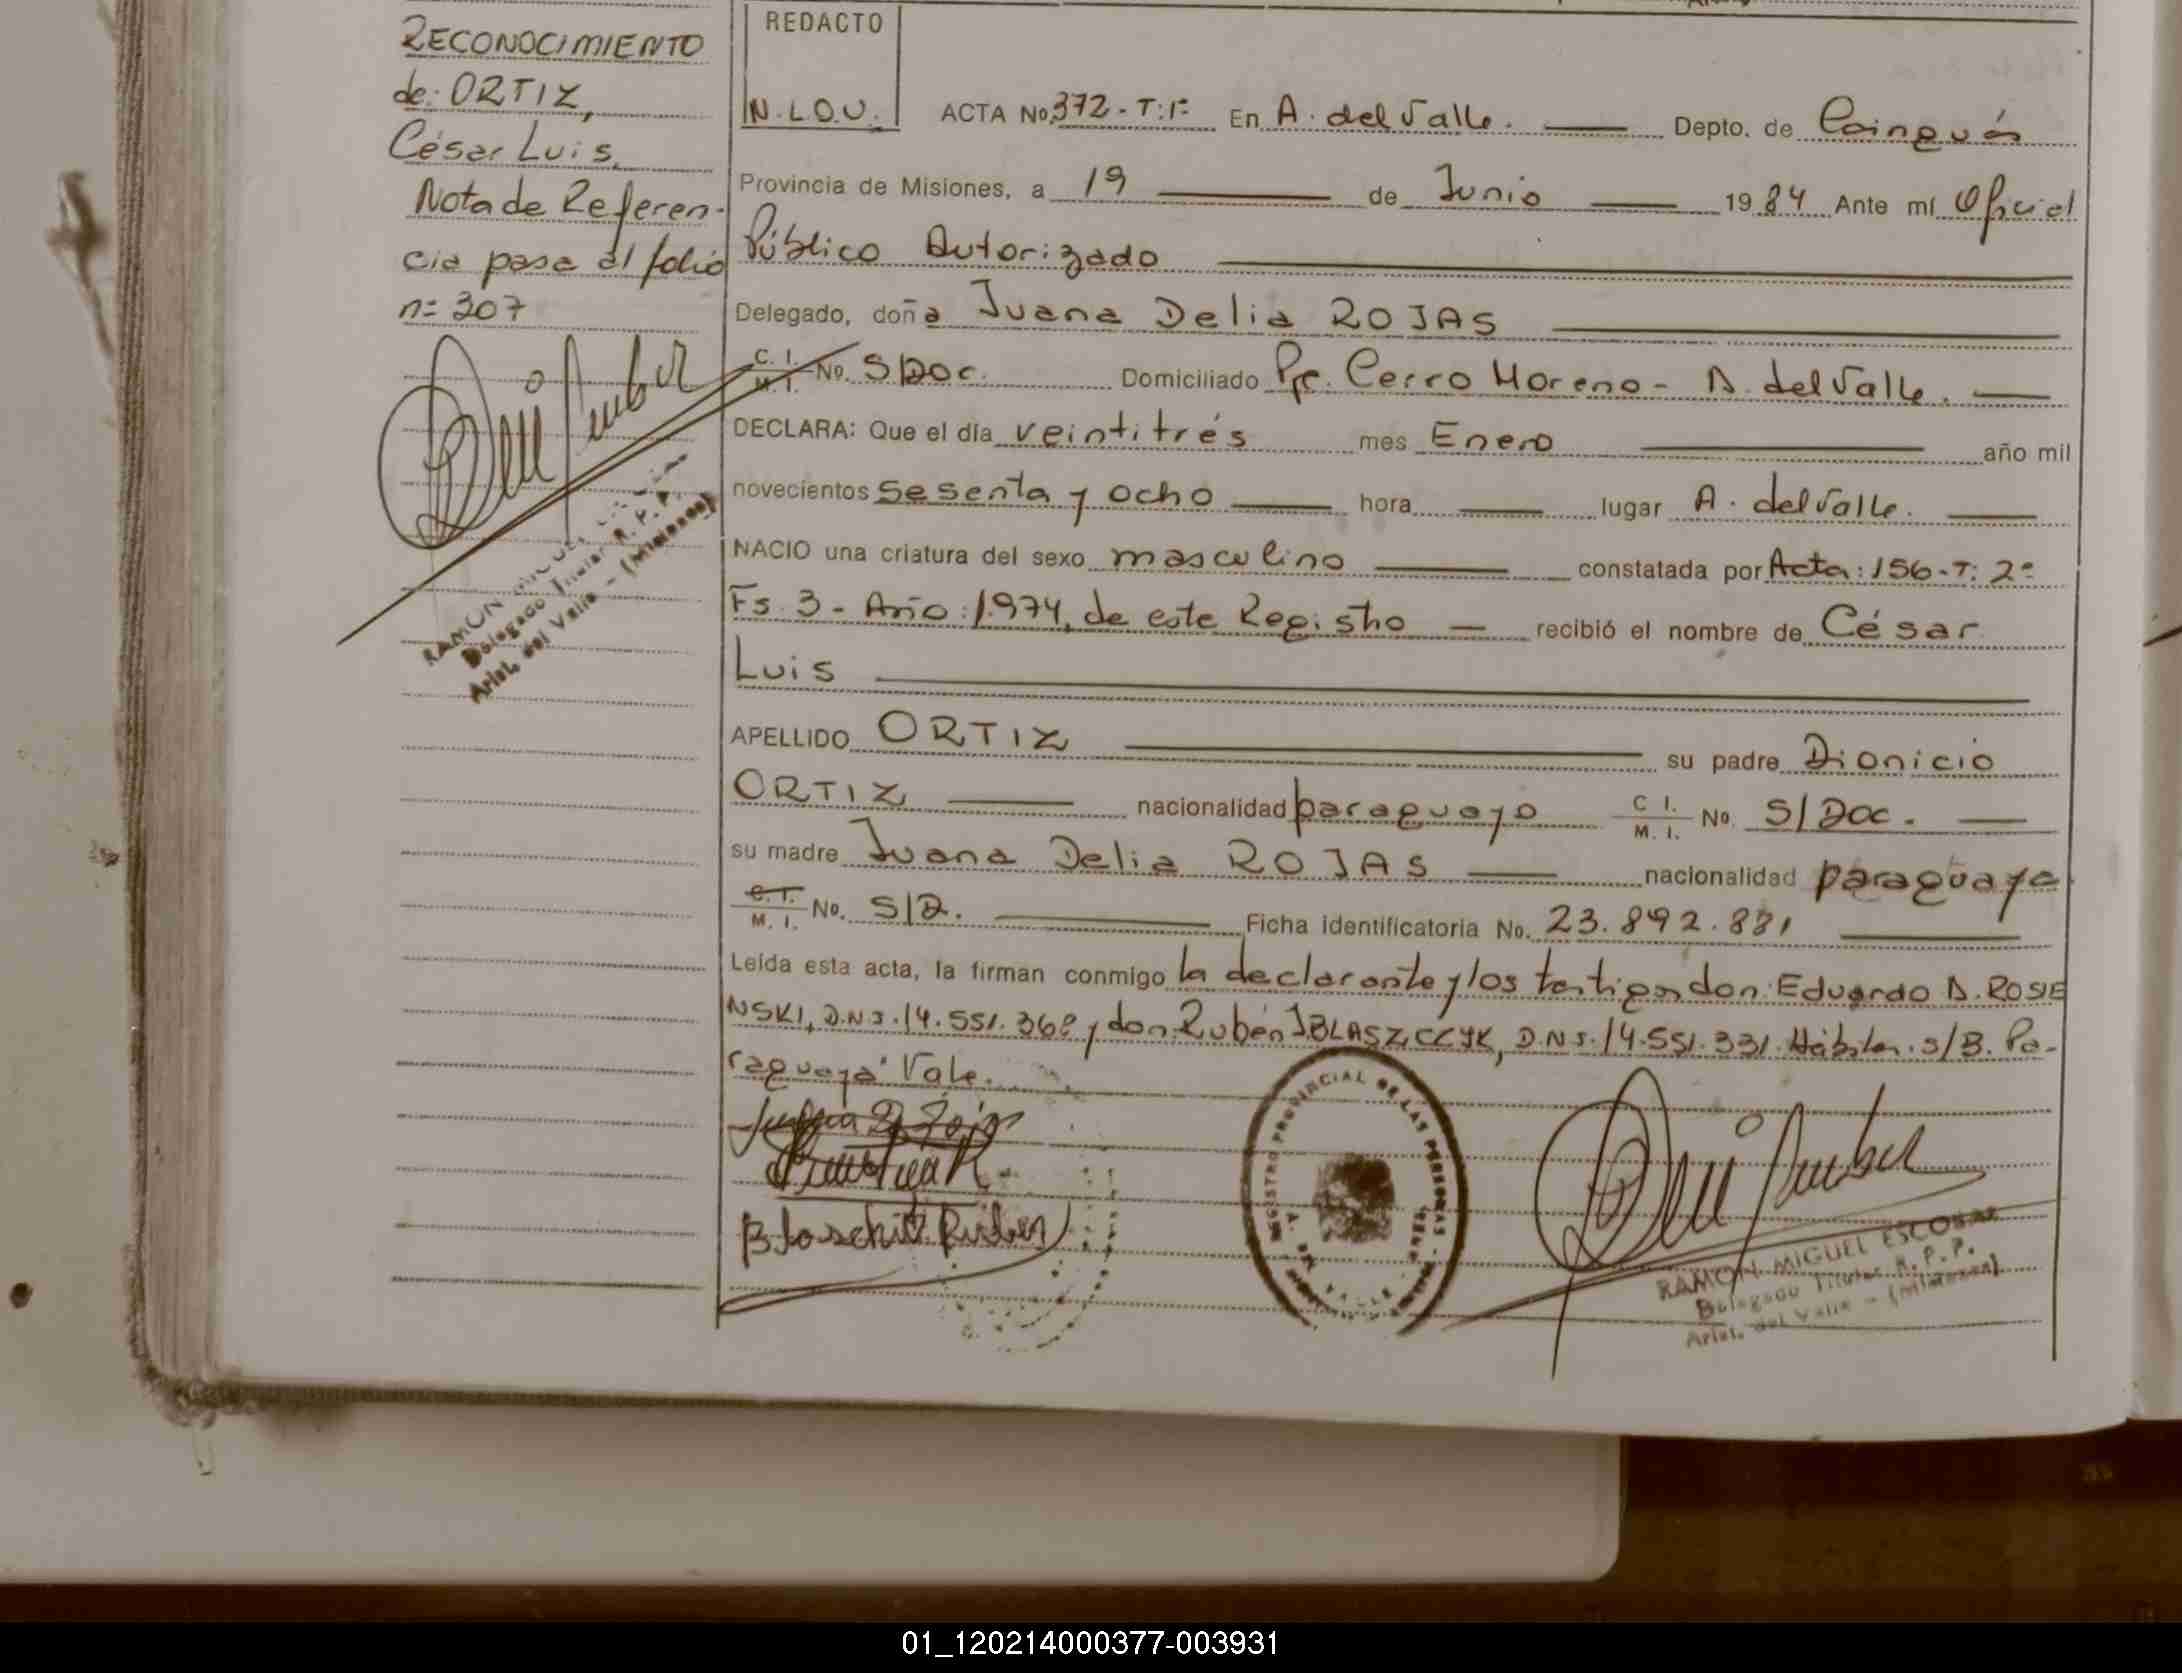 RECONOCIMIENTO
de: ORTIZ,
César Luis.
Nota de Referen-
cia pasa al folio
n= 307
RAMON MIGUEL
Delegado Titular R. P. P.
Arist. del Valle - (Misiones)
REDACTO
N.L.O.V.
ACTA No. 372 - T: 1º En A. del Valle. Depto. de Cainguás
Provincia de Misiones, a 19 de Junio 1984 Ante mí Oficial
Público Autorizado
Delegado, doña Juana Delia ROJAS
C. I. M. I. No. S/Doc. Domiciliado Pje. Cerro Moreno - A. del Valle.
DECLARA: Que el día veintitrés mes Enero año mil
novecientos sesenta y ocho hora lugar A. del Valle.
NACIO una criatura del sexo masculino constatada por Acta: 156-T: 2º
Fs. 3 - Año: 1.974, de este Registro recibió el nombre de César
Luis
APELLIDO ORTIZ su padre Dionicio
ORTIZ nacionalidad paraguayo C I. M. I. No. S/Doc.
su madre Juana Delia ROJAS nacionalidad paraguaya
C. I. M. I. No. S/D. Ficha identificatoria No. 23.892.881
Leída esta acta, la firman conmigo la declarante y los testigos don: Eduardo A. ROSIE
NSKI, D.N.I. 14.551.368 y don Rubén J. BLASZCCYK, D.N.I. 14.551.331. Hábiles. s/B. Pa-
raguaya Vale.
REGISTRO PROVINCIAL DE LAS PERSONAS
A. DEL VALLE
RAMON MIGUEL ESCOBAR
Delegado Titular R. P. P.
Arist. del Valle - (Misiones)
01_120214000377-003931